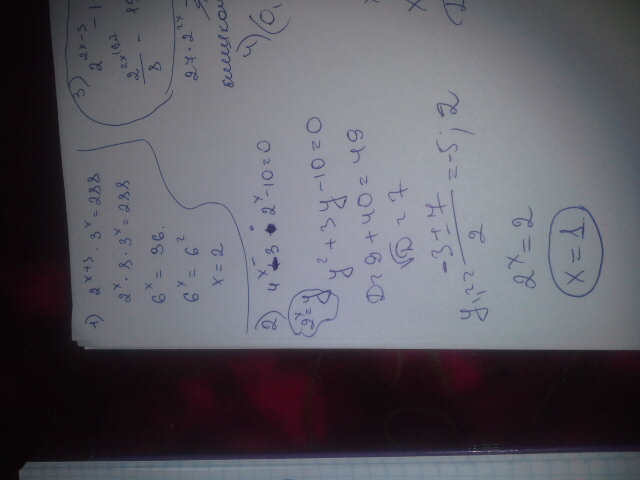 1) 2^{x+3} · 3^x = 288
2^x · 8 · 3^x = 288
6^x = 36.
6^x = 6^2
x = 2
2) 4^x 3 · 2^x - 10 = 0
2^x = y
y^2 + 3y - 10 = 0
D = 9 + 40 = 49
√D = 7
y_{1,2} = \frac{-3 ± 7}{2} = -5; 2
2^x = 2
x = 1
3) 2^{2x-3} - 1
27 · 2^{2x}
4) (0,